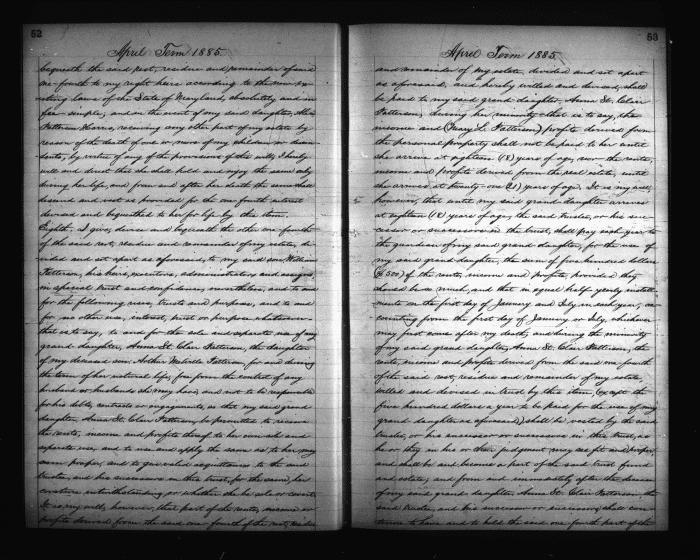 52
April Term 1885.
bequeath the said rest, residue and remainder of said
one-fourth to my right heirs according to the now ex-
isting laws of the State of Maryland, absolutely and in
fee-simple, and in the event of my said daughter,
Patterson Harris, receiving any other part of my estate by
reason of the death of one or more of my children or descen-
dants, by virtue of any of the provisions of this will, I hereby
will and direct that she shall hold and enjoy the same only
during her life, and from and after her death the same shall
descend and vest as provided for the one-fourth interest
devised and bequeathed to her for life by this item.
Eighth. I give, devise and bequeath the other one-fourth
of the said rest, residue and remainder of my estate, di-
vided and set apart as aforesaid, to my said son William
Patterson, his heirs, executors, administrators and assigns,
in special trust and confidence, nevertheless, and to and
for the following uses, trusts and purposes, and to and
for no other use, interest, trust or purpose whatsoever
that is to say, to and for the sole and separate use of my
grand-daughter, Anna St. Clair Patterson, the daughter
of my deceased son, Arthur Melville Patterson for and during
the term of her natural life, free from the control of any
husband or husbands she may have, and not to be responsible
for his debts, contracts or engagements, so that my said grand
daughter Anna St. Clair Patterson, be permitted to receive
the rents, income and profits thereof to her own sole and
separate use, and to use and apply the same as to her may
seem proper, and to give valid acquittances to the said
trustee, and his successors in this trust, for the same, her
coverture notwithstanding or whether she be sole or covert.
It is my will, however, that part of the rents, income or
profits derived from the said one-fourth of the rest, residue
53
April Term 1885.
and remainder of my estate, divided and set apart
as aforesaid, and hereby willed and devised, shall
be paid to my said grand-daughter, Anna St. Clair
Patterson, during her minority—that is to say, the
income and (Mary L. Patterson) profits derived from
the personal property shall not be paid to her until
she arrives at eighteen (18) years of age, nor the rents,
income and profits derived from the real estate, until
she arrives at twenty-one (21) years of age. It is my will,
however, that until my said grand-daughter arrives
at eighteen (18) years of age, the said trustee, or his suc-
cessor or successors in the trust, shall pay each year to
the guardian of my said grand-daughter, for the use of
my said grand-daughter, the sum of five hundred dollars
($500) of the rents, income and profits, provided they
should be so much, and that in equal half yearly install-
ments on the first day of January and July in each year, ac-
counting from the first day of January or July, whichever
may first come after my death, and during the minority
of my said grand-daughter, Anna St. Clair Patterson, the
rents, income and profits derived from the said one-fourth
of the said rest, residue and remainder of my estate,
willed and devised in trust by this item, (except the
five hundred dollars a year to be paid for the use of my
grand-daughter as aforesaid,) shall be vested by the said
trustee, or his successor or successors in this trust, as
he or they in his or their judgment may see fit and proper,
and shall be and become a part of the said trust fund
and estate, and from and immediately after the decease
of my said grand-daughter Anna St. Clair Patterson, the
said trustee, and his successor or successors, shall con-
tinue to have and to hold the said one-fourth part of the